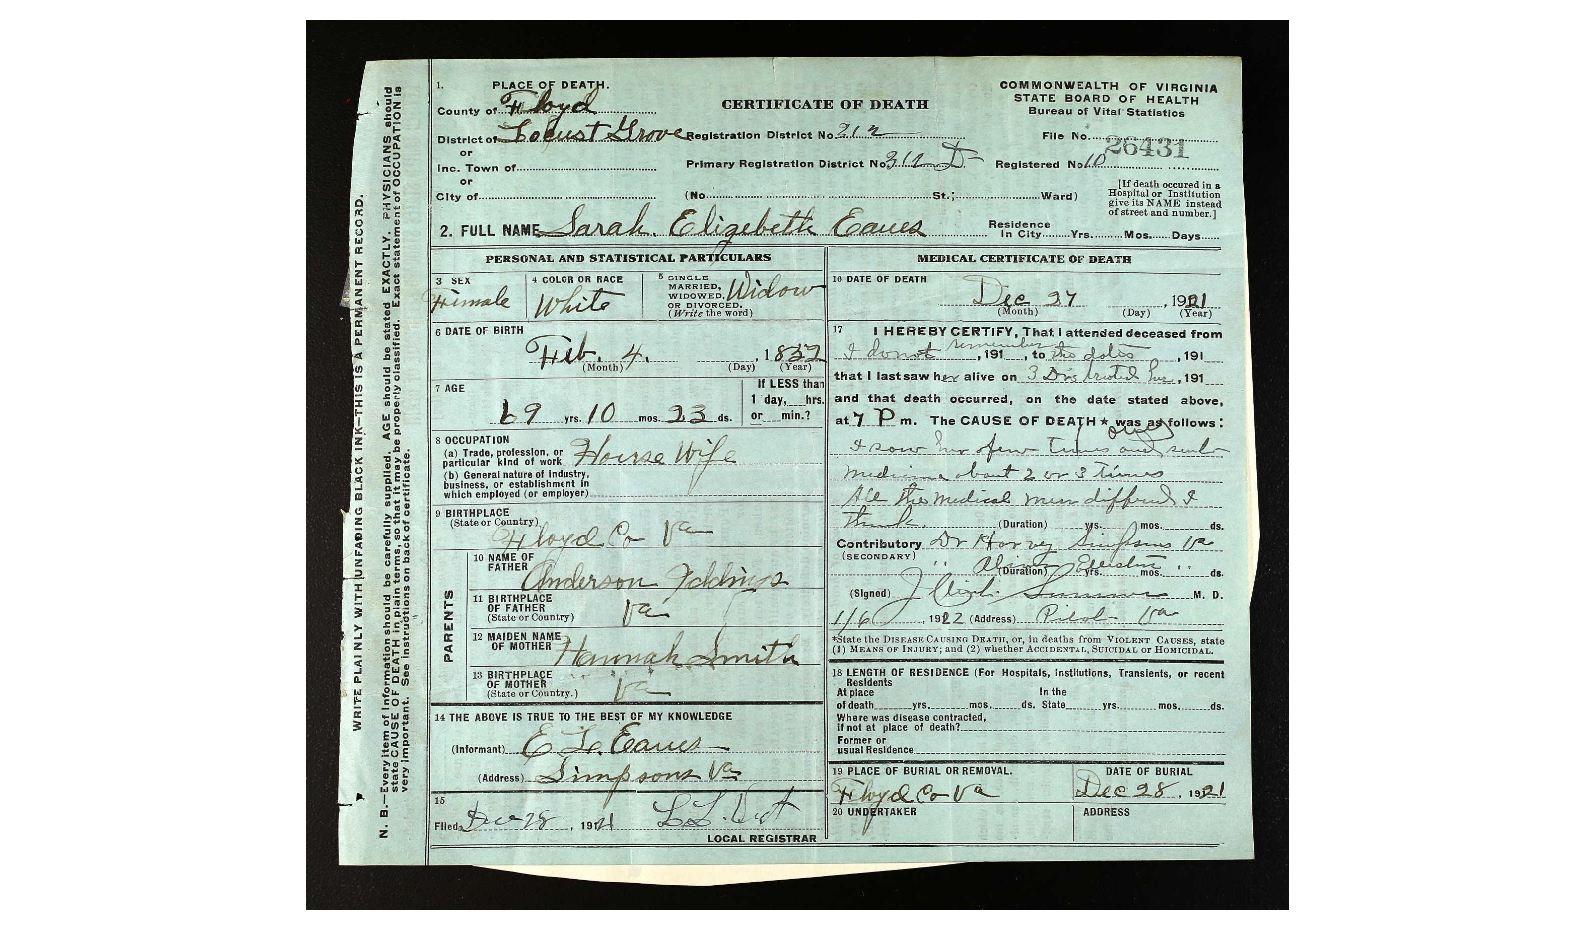 WRITE PLAINLY WITH UNFADING BLACK INK—THIS IS A PERMANENT RECORD.
N. B.—Every item of Information should be carefully supplied. AGE should be stated EXACTLY. PHYSICIANS should
state CAUSE OF DEATH in plain terms, so that it may be properly classified. Exact statement of OCCUPATION is
very important. See instructions on back of certificate.
1. PLACE OF DEATH.
County of Floyd
District of Locust Grove
or
Inc. Town of
or
City of
CERTIFICATE OF DEATH
Registration District No. 312
Primary Registration District No. 312 D
(No. St.; Ward)
COMMONWEALTH OF VIRGINIA
STATE BOARD OF HEALTH
Bureau of Vital Statistics
File No. 26431
Registered No. 10
[If death occured in a
Hospital or Institution
give its NAME instead
of street and number.]
2. FULL NAME Sarah Elizebeth Eaves
Residence
In City Yrs. Mos. Days
PERSONAL AND STATISTICAL PARTICULARS
3 SEX
Female
4 COLOR OR RACE
White
5 SINGLE
MARRIED,
WIDOWED,
OR DIVORCED.
(Write the word)
Widow
6 DATE OF BIRTH
Feb. 4. , 1852
(Month) (Day) (Year)
7 AGE
69 yrs. 10 mos. 23 ds.
If LESS than
1 day, hrs.
or min.?
8 OCCUPATION
(a) Trade, profession, or
particular kind of work House Wife
(b) General nature of Industry,
business, or establishment in
which employed (or employer)
9 BIRTHPLACE
(State or Country)
Floyd Co Va
PARENTS
10 NAME OF
FATHER
Anderson Iddings
11 BIRTHPLACE
OF FATHER
(State or Country)
Va
12 MAIDEN NAME
OF MOTHER
Hannah Smith
13 BIRTHPLACE
OF MOTHER
(State or Country.)
Va
14 THE ABOVE IS TRUE TO THE BEST OF MY KNOWLEDGE
(Informant) E L Eaves
(Address) Simpsons Va
15
Filed Dec 28, 1921
LOCAL REGISTRAR
MEDICAL CERTIFICATE OF DEATH
16 DATE OF DEATH
Dec 27 , 1921
(Month) (Day) (Year)
17 I HEREBY CERTIFY, That I attended deceased from
I do not remember , 191 , to the dates , 191
that I last saw her alive on 3 Drs treated her , 191
and that death occurred, on the date stated above,
at 7 P m. The CAUSE OF DEATH★ was as follows:
I saw her a few times and sent
medicine about 2 or 3 times
All the medical men differed I
think. (Duration) yrs. mos. ds.
Contributory Dr Harvey Simpsons Va
(SECONDARY)
(Duration) yrs. mos. ds.
(Signed) M. D.
1/6, 1922 (Address) Pilot Va
*State the DISEASE CAUSING DEATH, or, in deaths from VIOLENT CAUSES, state
(1) MEANS OF INJURY; and (2) whether ACCIDENTAL, SUICIDAL or HOMICIDAL.
18 LENGTH OF RESIDENCE (For Hospitals, Institutions, Transients, or recent
Residents
At place In the
of death yrs. mos. ds. State yrs. mos. ds.
Where was disease contracted,
if not at place of death?
Former or
usual Residence
19 PLACE OF BURIAL OR REMOVAL.
Floyd Co Va
DATE OF BURIAL
Dec 28, 1921
20 UNDERTAKER
ADDRESS